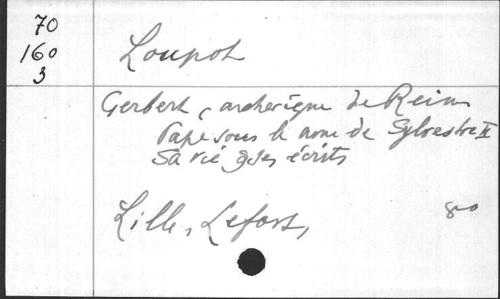 70
160
3
Loupot
Gerbert, archevêque de Reims
Pape sous le nom de Sylvestre II
Sa vie & ses écrits
Lille, Lefort,
8o